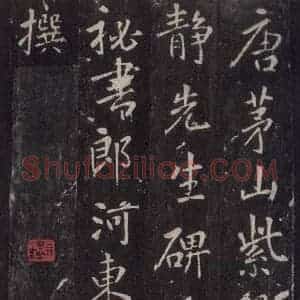 唐茅山紫
静先生碑
秘書郎河東
撰
Shufaziliao.COM